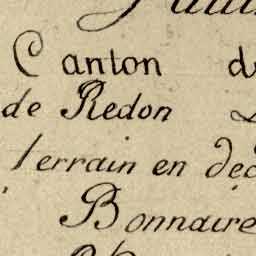 Canton d
de Redon
Terrain en déc
Bonnaire